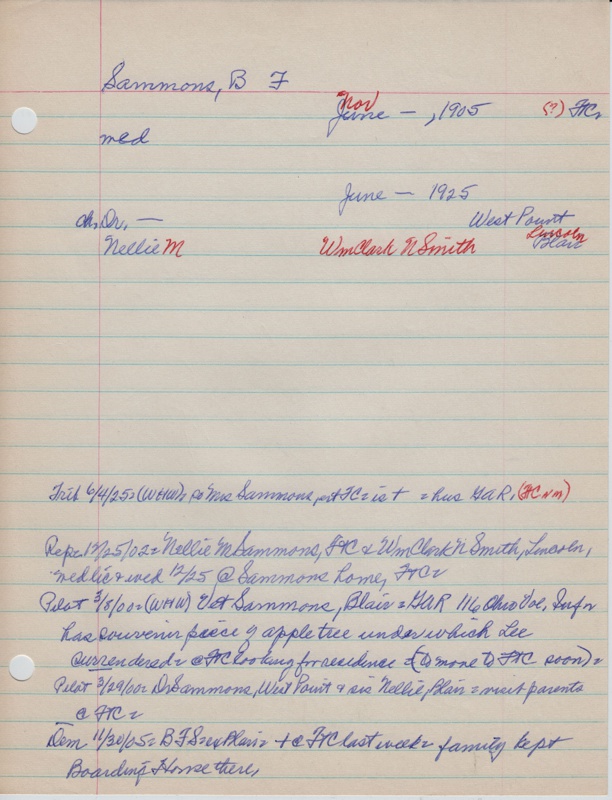 Sammons, B F
Nov
June — , 1905 (?) FtC
med
June — 1925
ch. Dr. — West Point
Lincoln
Nellie M WmClark N Smith Blair
Trib 6/4/25= (WHW)= Mrs Sammons, FtC= is + = hus GAR, (FC)
12/25/02= Nellie M Sammons, FtC & WmClark N Smith, Lincoln,
wed lic & wed 12/25 @ Sammons home, FtC=
Pilot 3/8/00= (WHW) Vet Sammons, Blair = GAR 116 Ohio Vol, Inf
has souvenir piece of apple tree under which Lee
surrendered= @ FtC looking for residence = (to move to FtC soon)=
Pilot 3/29/00= Dr Sammons, West Point & sis Nellie, Blair = visit parents
@ FtC=
Dem 11/30/05= B F S= ex Blair= + @ FtC last week= family kept
Boarding House there,